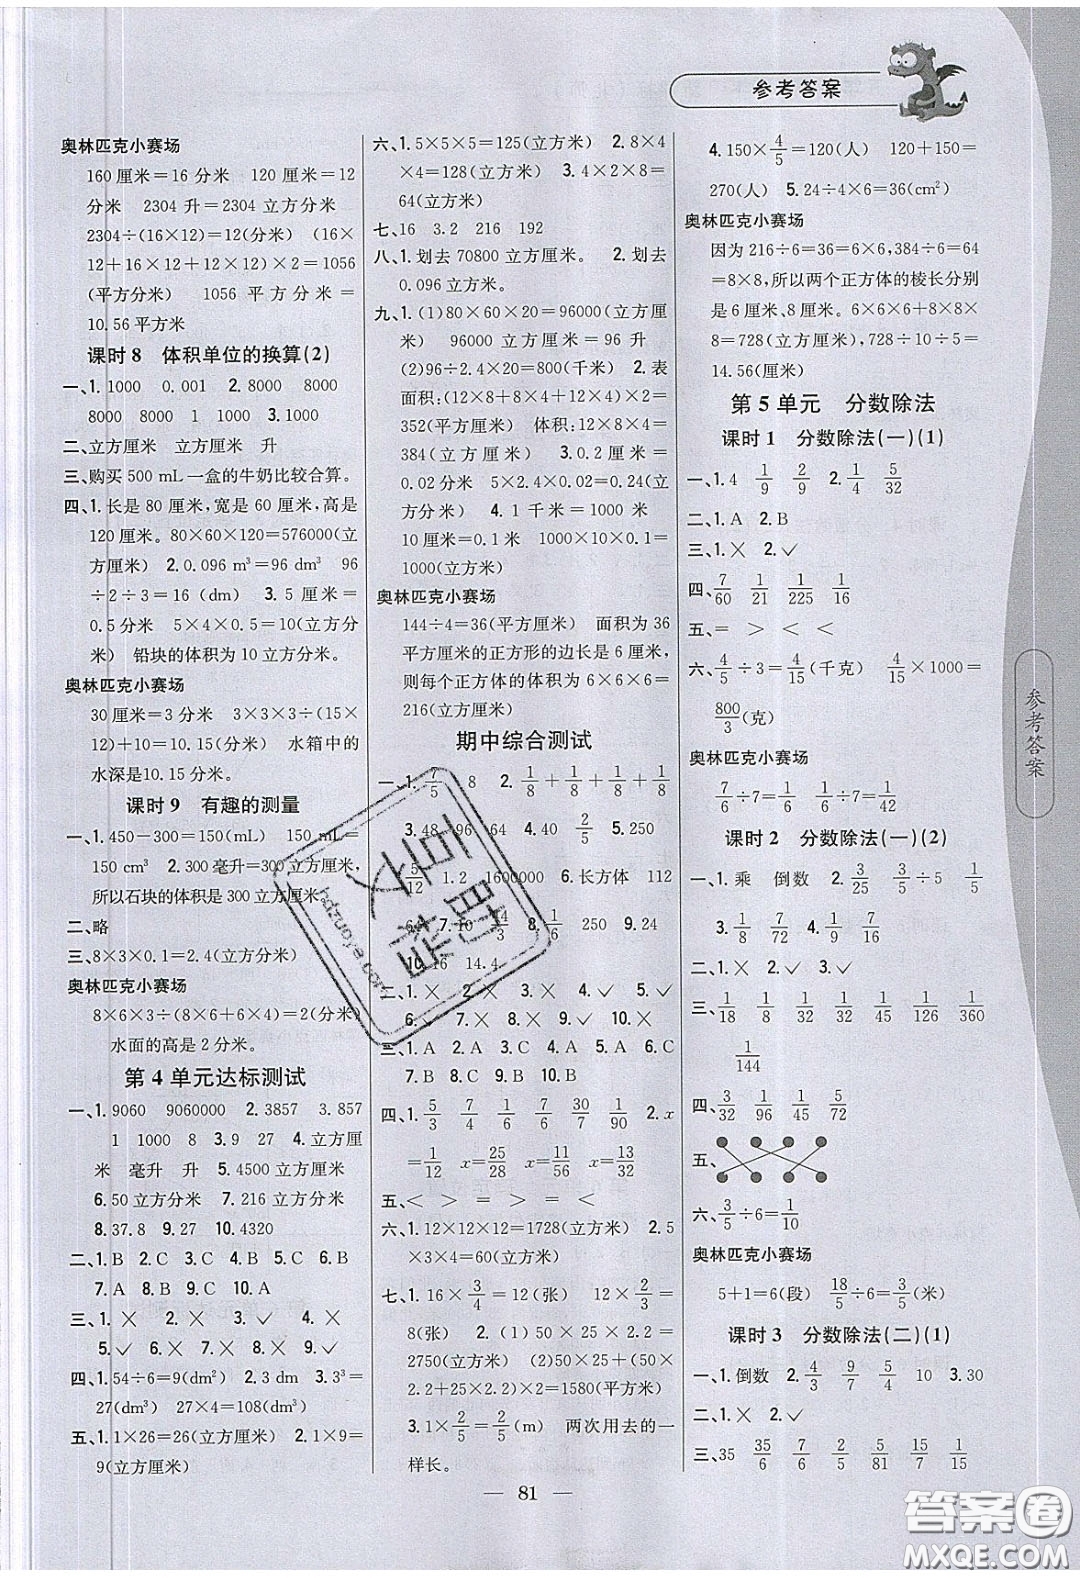 参考答案
奥林匹克小赛场
160厘米=16分米 120厘米=12
分米 2304升=2304立方分米
2304÷(16×12)=12(分米) (16×
12+16×12+12×12)×2=1056
(平方分米) 1056平方分米=
10.56平方米
课时8 体积单位的换算(2)
一、1.1000 0.001 2.8000 8000
8000 8000 1 1000 3.1000
二、立方厘米 立方厘米 升
三、购买500 mL一盒的牛奶比较合算。
四、1.长是80厘米,宽是60厘米,高是
120厘米。80×60×120=576000
(立方厘米) 2.0.096 m³=96 dm³ 96
÷2÷3=16(dm) 3.5厘米=
0.5分米 5×4×0.5=10(立方分
米) 铅块的体积为10立方分米。
奥林匹克小赛场
30厘米=3分米 3×3×3÷(15×
12)+10=10.15(分米) 水箱中的
水深是10.15分米。
课时9 有趣的测量
一、1.450-300=150(mL) 150 mL=
150 cm³ 2.300毫升=300立方厘米,
所以石块的体积是300立方厘米。
二、略
三、8×3×0.1=2.4(立方分米)
奥林匹克小赛场
8×6×3÷(8×6+6×4)=2(分米)
水面的高是2分米。
第4单元达标测试
一、1.9060 9060000 2.3857 3.857
1 1000 8 3.9 27 4.立方厘
米 毫升 升 5.4500立方厘米
6.50立方分米 7.216立方分米
8.37.8 9.27 10.4320
二、1.B 2.C 3.B 4.C 5.B 6.C
7.A 8.B 9.A 10.A
三、1.× 2.× 3.✓ 4.×
5.✓ 6.✓ 7.× 8.✓
四、1.54÷6=9(dm²) 2.3 dm 3.3³=
27(dm³) 27×4=108(dm³)
五、1.1×26=26(立方厘米) 2.1×9=
9(立方厘米)
六、1.5×5×5=125(立方米) 2.8×4
×4=128(立方米) 3.4×2×8=
64(立方米)
七、16 3.2 216 192
八、1.划去70800立方厘米。 2.划去
0.096立方米。
九、1.(1)80×60×20=96000(立方厘
米) 96000立方厘米=96升
(2)96÷2.4×20=800(千米) 2.表
面积:(12×8+8×4+12×4)×2=
352(平方厘米) 体积:12×8×4=
384(立方厘米) 3.2厘米=
0.02分米 5×2.4×0.02=0.24(立
方分米) 4.1千米=1000米
10厘米=0.1米 1000×10×0.1=
1000(立方米)
奥林匹克小赛场
144÷4=36(平方厘米) 面积为36
平方厘米的正方形的边长是6厘米,
则每个正方体的体积为6×6×6=
216(立方厘米)
期中综合测试
一、1.7/5 8 2.1/8+1/8+1/8+1/8
3.48 96 64 4.40 2/5 5.250
5/12 1.2 1600000 6.长方体 112
64 7.10 14/3 8.1/6 250 9.24
10.16 14.4
二、1.× 2.× 3.× 4.✓ 5.✓
6.✓ 7.× 8.× 9.✓ 10.×
三、1.A 2.C 3.B 4.A 5.A 6.C
7.B 8.B 9.A 10.C
四、1.5/3 7/4 1/6 7/6 30/7 1/90 2.x
=1/12 x=25/28 x=11/56 x=13/32
五、< > = > = <
六、1.12×12×12=1728(立方米) 2.5
×3×4=60(立方米)
七、1.16×3/4=12(张) 12×2/3=
8(张) 2.(1)50×25×2.2=
2750(立方米) (2)50×25+(50×
2.2+25×2.2)×2=1580(平方米)
3.1×2/5=2/5(m) 两次用去的一
样长。
4.150×4/5=120(人) 120+150=
270(人) 5.24÷4×6=36(cm²)
奥林匹克小赛场
因为216÷6=36=6×6,384÷6=64
=8×8,所以两个正方体的棱长分别
是6厘米、8厘米。6×6×6+8×8×
8=728(立方厘米),728÷10÷5=
14.56(厘米)
第5单元 分数除法
课时1 分数除法(一)(1)
一、1.4 1/9 2/9 2.1/4 5/32
二、1.A 2.B
三、1.× 2.✓
四、7/60 1/21 1/225 1/16
五、= > < <
六、4/5÷3=4/15(千克) 4/15×1000=
800/3(克)
奥林匹克小赛场
7/6÷7=1/6 1/6÷7=1/42
课时2 分数除法(一)(2)
一、1.乘 倒数 2.3/25 3/5÷5 1/5
3.1/8 7/72 4.4/9
二、1.× 2.✓ 3.✓
三、1/18 1/8 2/45 1/126 1/360
1/144
四、3/32 1/96 1/45 5/72
五、
六、3/5÷6=1/10
奥林匹克小赛场
5+1=6(段) 18/5÷6=3/5(米)
课时3 分数除法(二)(1)
一、1.倒数 2.4/3 9/7 5/4 10 3.30
二、1.× 2.✓
三、35 35/6 7/6 5/81 15/2 1/15
参考答案
81
答案圈
MXQE.COM